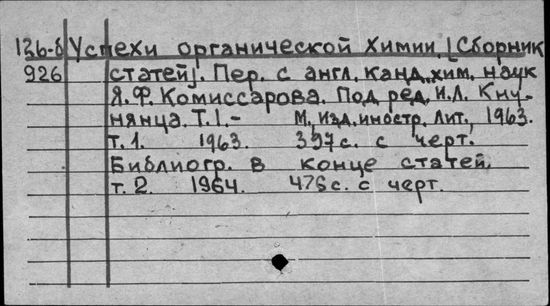 136-б Успехи органической химии. [Сборник
926 статей]. Пер. с англ. канд. хим. наук
Я. Ф. Комиссарова. Под ред. И. Л. Кну-
нянца. Т. 1.- М., Изд. иностр. лит., 1963.
т. 1. 1963. 397 с. с черт.
Библиогр. в конце статей.
т. 2. 1964. 476 с. с черт.